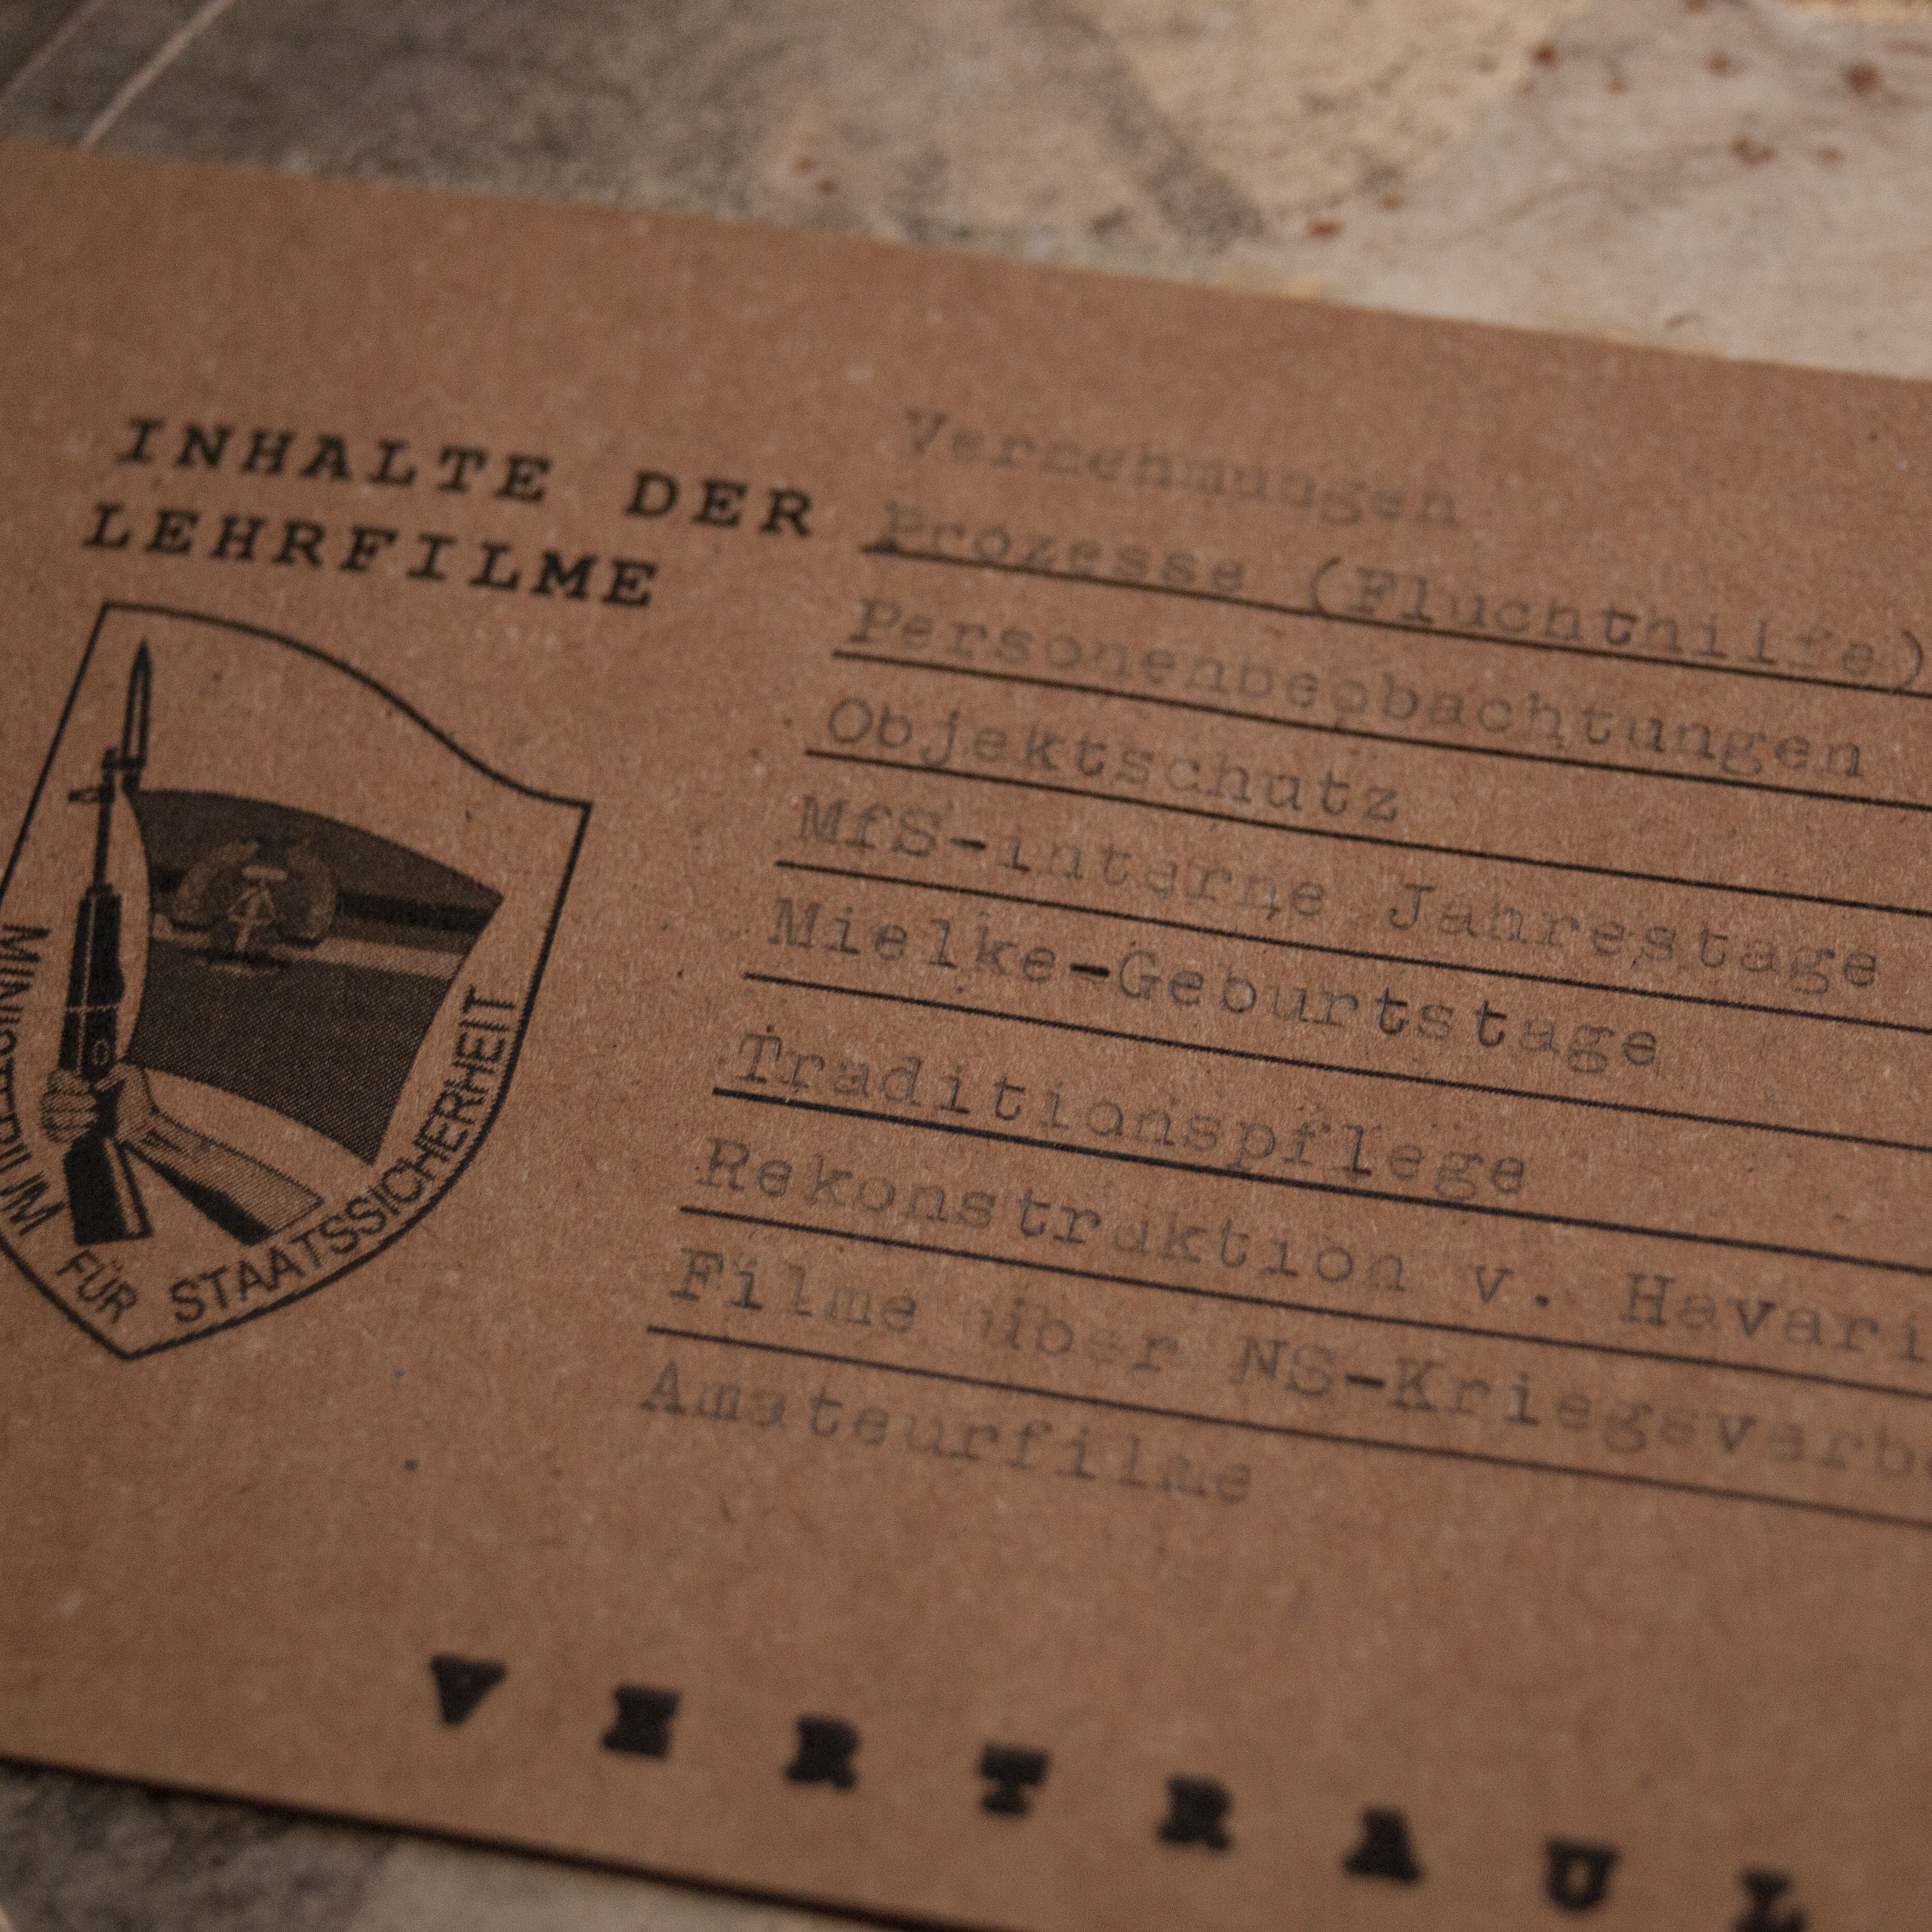 INHALTE DER
LEHRFILME
Vernehmungen
Prozesse (Fluchthilfe)
Personenbeobachtungen
Objektschutz
MfS-interne Jahrestage
Mielke-Geburtstage
Traditionspflege
Rekonstruktion v. Havari
Filme über NS-Kriegsverbr
Amateurfilme
MINISTERIUM FÜR STAATSSICHERHEIT
VERTRAUL